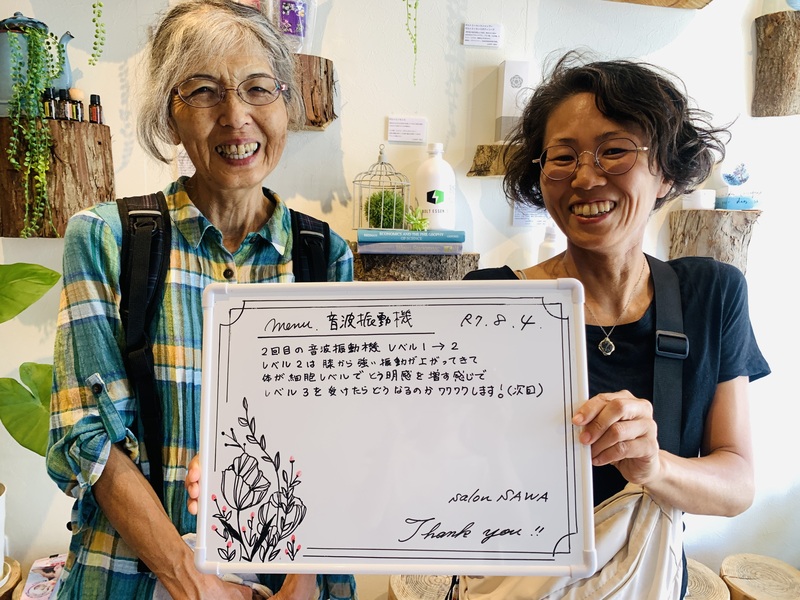 menu. 音波振動機 R7.8.4.
2回目の音波振動機 レベル1→2
レベル2は膝から強い振動が上がってきて
体が細胞レベルでとう明感を増す感じで
レベル3を受けたらどうなるのかワクワクします!(次回)
salon SAWA
Thank you!!